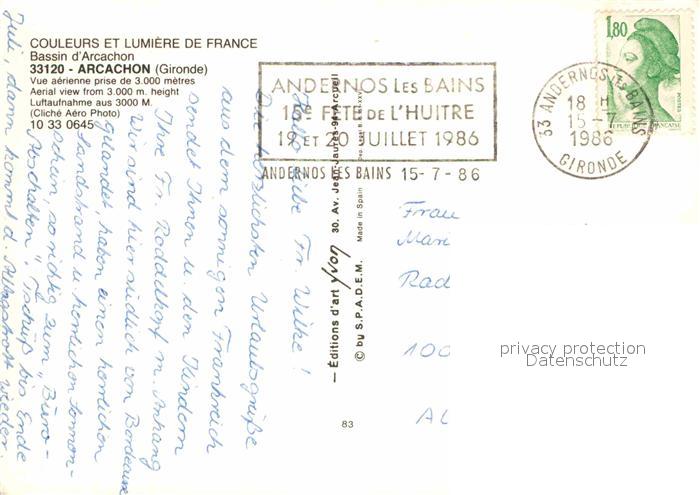 COULEURS ET LUMIÈRE DE FRANCE
Bassin d'Arcachon
33120 - ARCACHON (Gironde)
Vue aérienne prise de 3.000 mètres
Aerial view from 3.000 m. height
Luftaufnahme aus 3000 M.
(Cliché Aéro Photo)
10 33 0645
ANDERNOS LES BAINS
15e FÊTE DE L'HUITRE
19 ET 20 JUILLET 1986
ANDERNOS LES BAINS 15-7-86
33 ANDERNOS-LES-BAINS
18 H
15-7
1986
GIRONDE
1,80
Liebe Fr. Wilke!
Die herzlichsten Urlaubsgrüße
aus dem sonnigen Frankreich
sendet Ihnen u. den Kindern
Ihre Fr. Raddelhopf m. Anhang
Wir sind hier südlich von Bordeaux
gelandet, haben einen herrlichen
Sandstrand u. herrlichen Sonnen-
schein, so richtig zum "Büro-
Abschalten". Tschüß bis Ende
Juli, dann kommt d. Alltagstrott wieder.
— Éditions d'art yvon 30, Av. Jean-Jaurès-94-Arcueil
© by S.P.A.D.E.M. Made in Spain
83
Frau
Mari
Rad
100
AL
privacy protection
Datenschutz